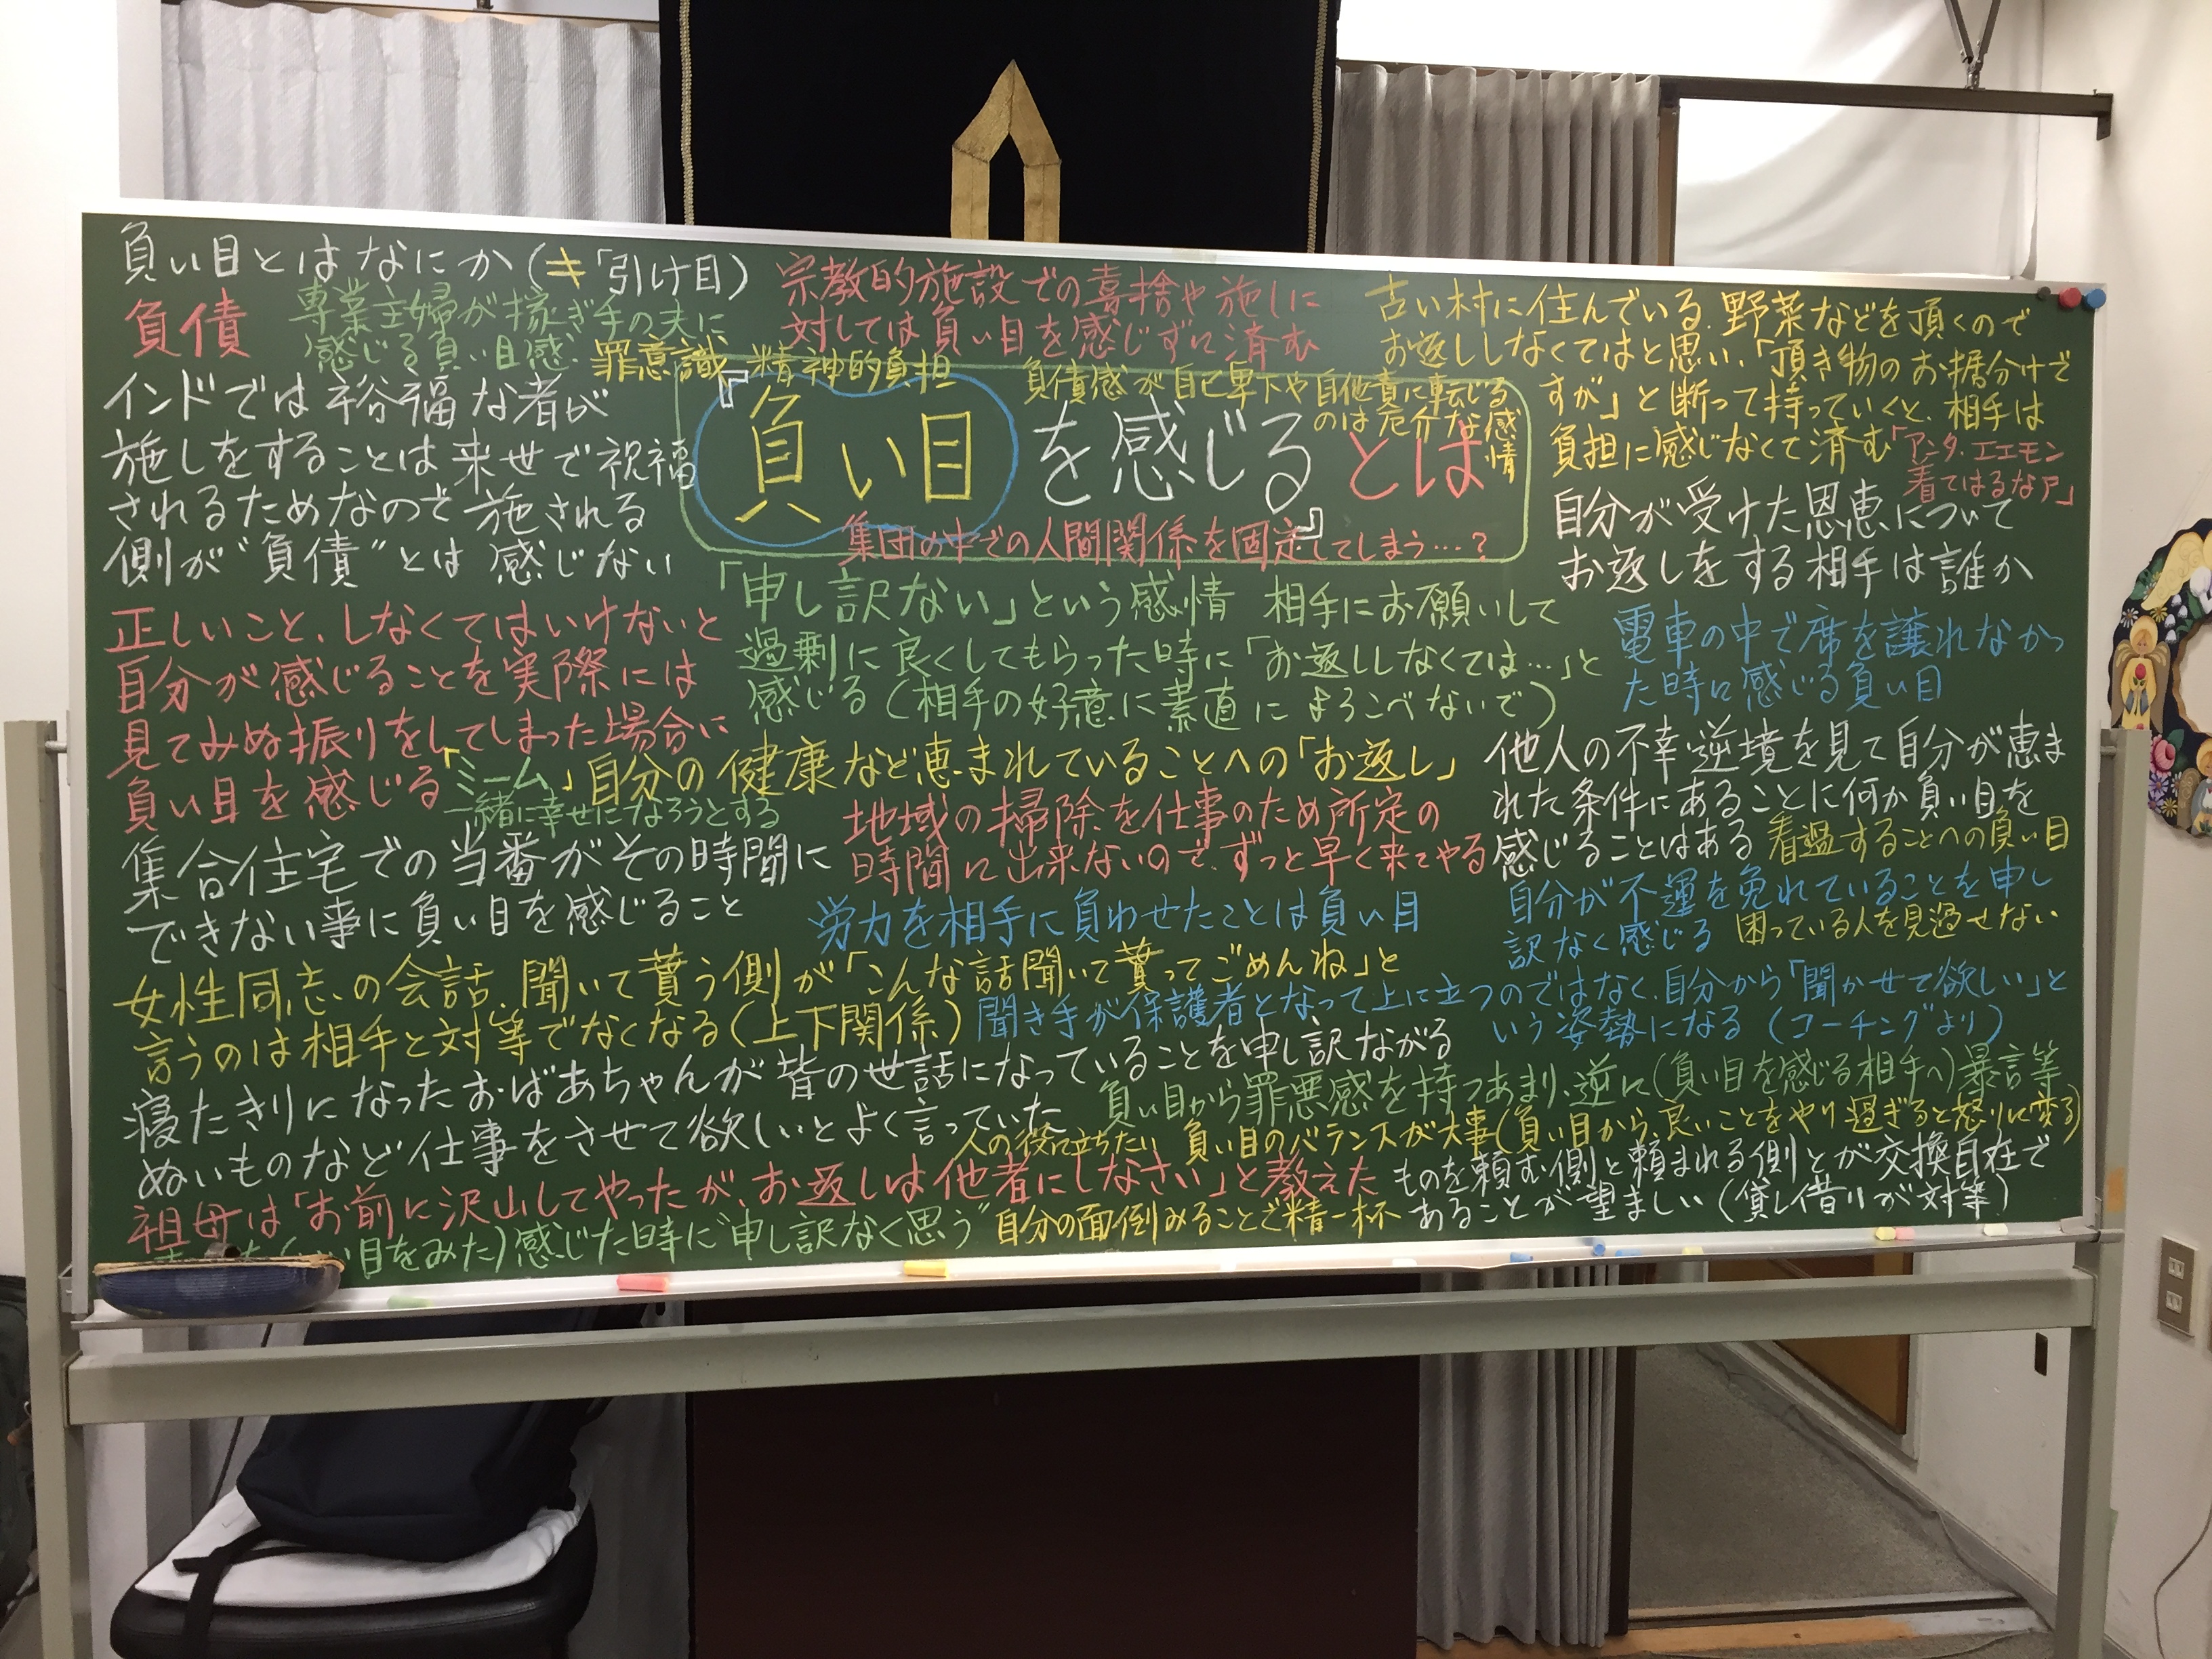 負い目とはなにか(≠「引け目」)
負債
専業主婦が稼ぎ手の夫に
感じる負い目感.
罪意識 精神的負担
宗教的施設での喜捨や施しに
対しては負い目を感じずに済む
古い村に住んでいる.野菜などを頂くので
お返ししなくてはと思い、「頂き物のお据分けで
すが」と断って持っていくと、相手は
負担に感じなくて済む
「アンタ、エエモン
着てはるなァ」
インドでは裕福な者が
施しをすることは来世で祝福
されるためなので施される
側が"負債"とは感じない
負債感が自己卑下や自他責に転じる
のは厄介な感
情
『負い目を感じる』とは
集団の中での人間関係を固定してしまう…?
自分が受けた恩恵について
お返しをする相手は誰か
正しいこと、しなくてはいけないと
自分が感じることを実際には
見てみぬ振りをしてしまった場合に
負い目を感じる
「申し訳ない」という感情 相手にお願いして
過剰に良くしてもらった時に「お返ししなくては…」と
感じる(相手の好意に素直によろこべないで)
電車の中で席を譲れなかっ
た時に感じる負い目
「ミーム」
一緒に幸せになろうとする
自分の健康など恵まれていることへの「お返し」
他人の不幸・逆境を見て自分が恵ま
れた条件にあることに何か負い目を
感じることはある
看過することへの負い目
集合住宅での当番がその時間に
できない事に負い目を感じること
地域の掃除を仕事のため所定の
時間に出来ないので、ずっと早く来てやる
労力を相手に負わせたことは負い目
自分が不運を免れていることを申し
訳なく感じる
困っている人を見過せない
女性同志の会話、聞いて貰う側が「こんな話聞いて貰ってごめんね」と
言うのは相手と対等でなくなる(上下関係)
聞き手が保護者となって上に立つのではなく、自分から「聞かせて欲しい」と
いう姿勢になる(コーチングより)
寝たきりになったおばあちゃんが皆の世話になっていることを申し訳ながる
ぬいものなど仕事をさせて欲しいとよく言っていた
人の役に立ちたい
負い目から罪悪感を持つあまり、逆に(負い目を感じる相手へ)暴言等
負い目のバランスが大事(負い目から、良いことをやり過ぎると怒りに変る)
祖母は「お前に沢山してやったが、お返しは他者にしなさい」と教えた
ものを頼む側と頼まれる側とが交換自在で
あることが望ましい(貸し借りが対等)
目をみた)感じた時に"申し訳なく思う"
自分の面倒みることで精一杯